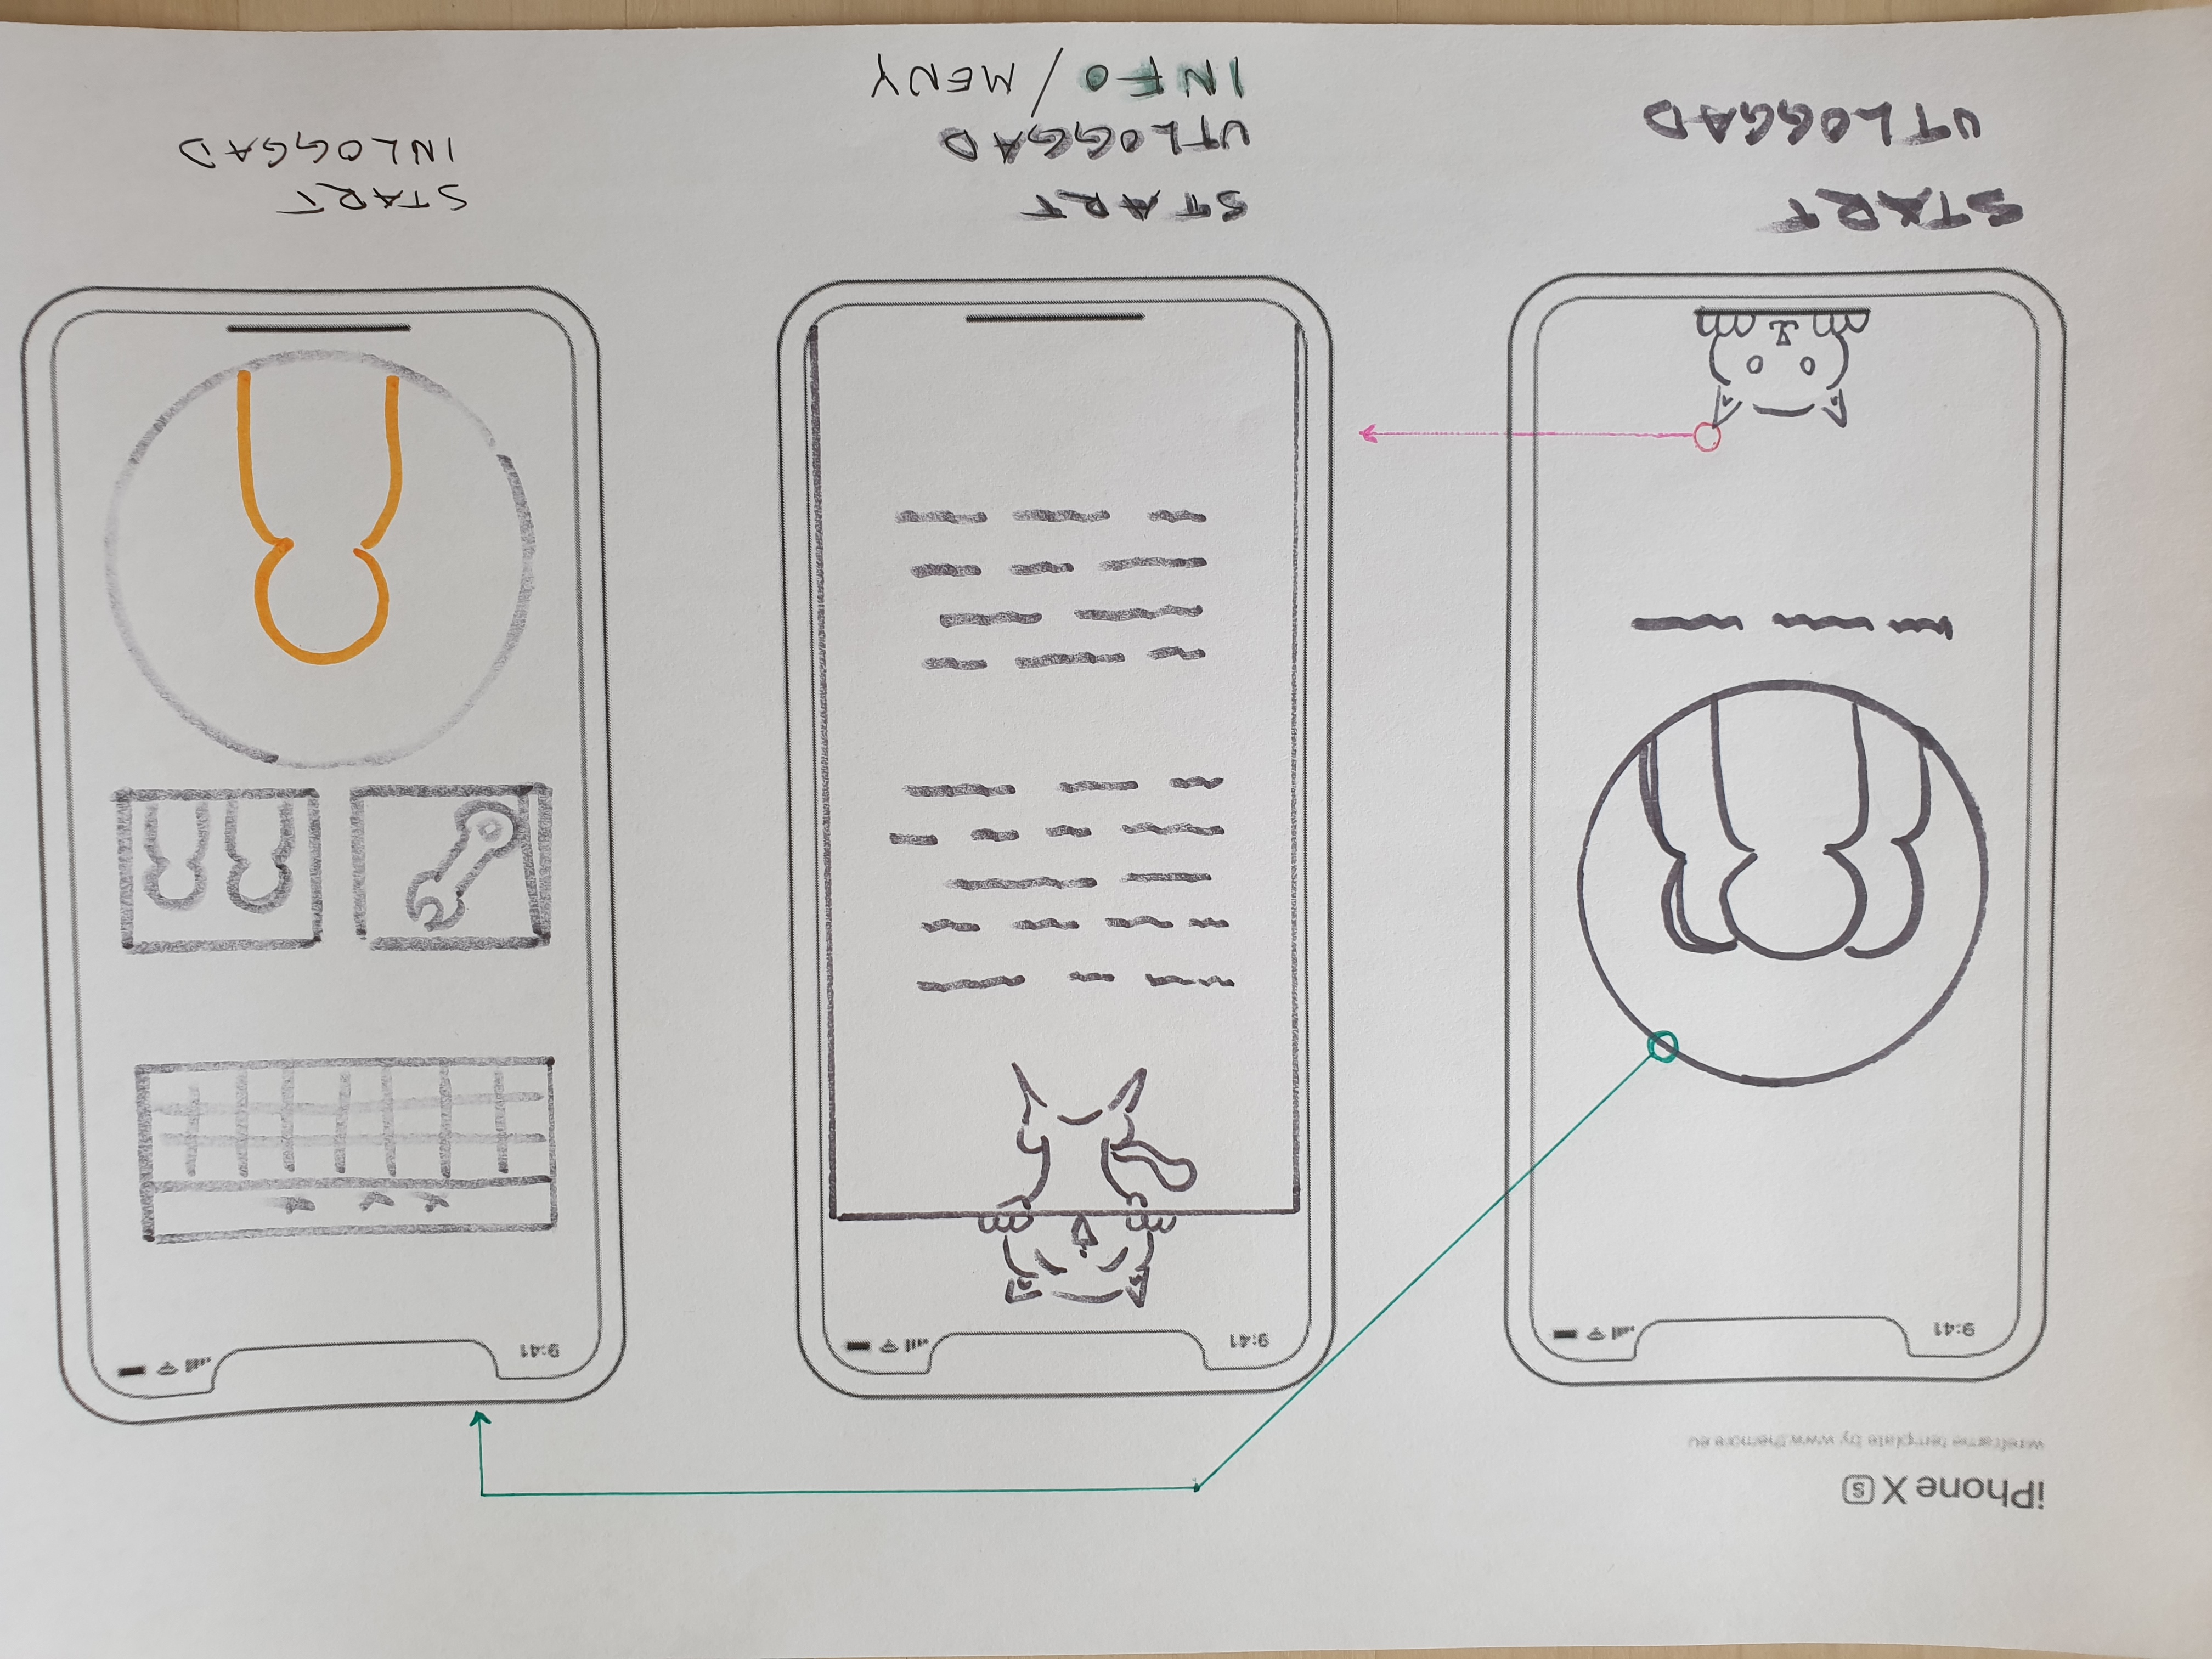 iPhone X S
wireframe template by www.themore.eu
9:41
9:41
9:41
START
UTLOGGAD
START
UTLOGGAD
INFO / MENY
START
INLOGGAD